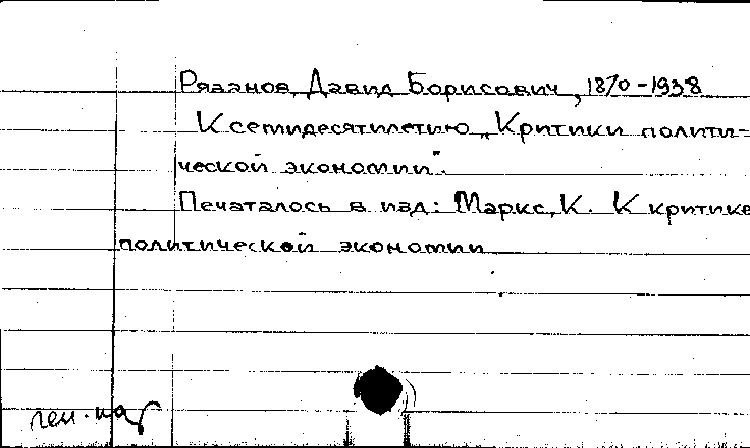 Рязанов, Давид Борисович, 1870-1938
К семидесятилетию „Критики полити-
ческой экономии".
Печаталось в изд: Маркс, К. К критике
политической экономии